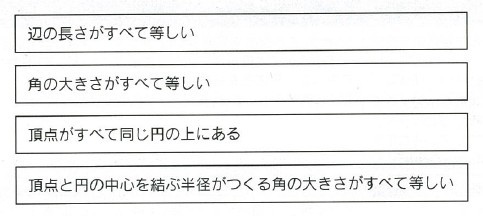 辺の長さがすべて等しい
角の大きさがすべて等しい
頂点がすべて同じ円の上にある
頂点と円の中心を結ぶ半径がつくる角の大きさがすべて等しい